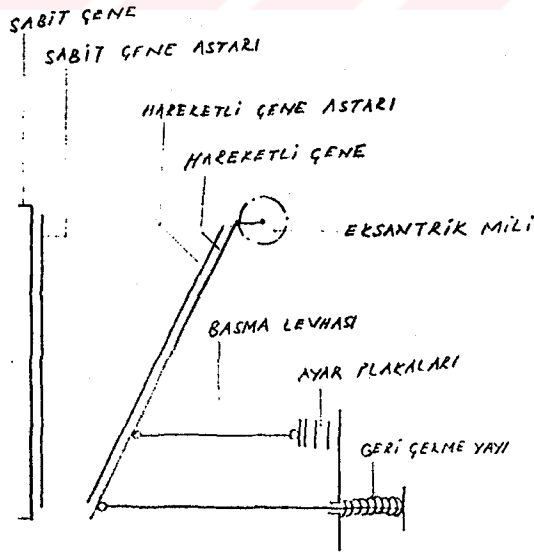 SABİT ÇENE
SABİT ÇENE ASTARI
HAREKETLİ ÇENE ASTARI
HAREKETLİ ÇENE
EKSANTRİK MİLİ
BASMA LEVHASI
AYAR PLAKALARI
GERİ ÇEKME YAYI